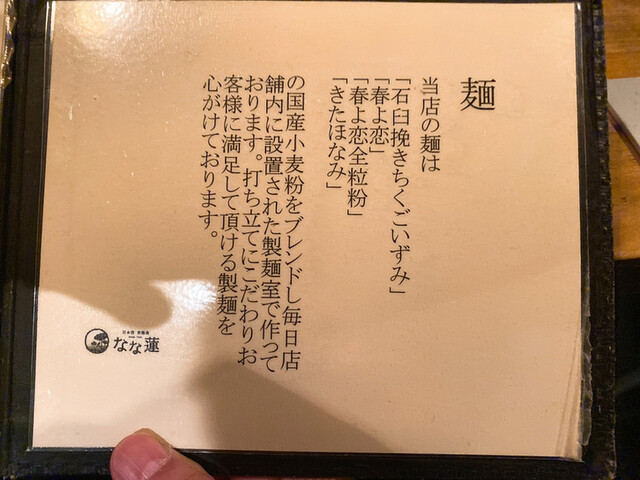 麺
当店の麺は
「石臼挽きちくごいずみ」
「春よ恋」
「春よ恋全粒粉」
「きたほなみ」
の国産小麦粉をブレンドし毎日店
舗内に設置された製麺室で作って
おります。打ち立てにこだわりお
客様に満足して頂ける製麺を
心がけております。
なな蓮